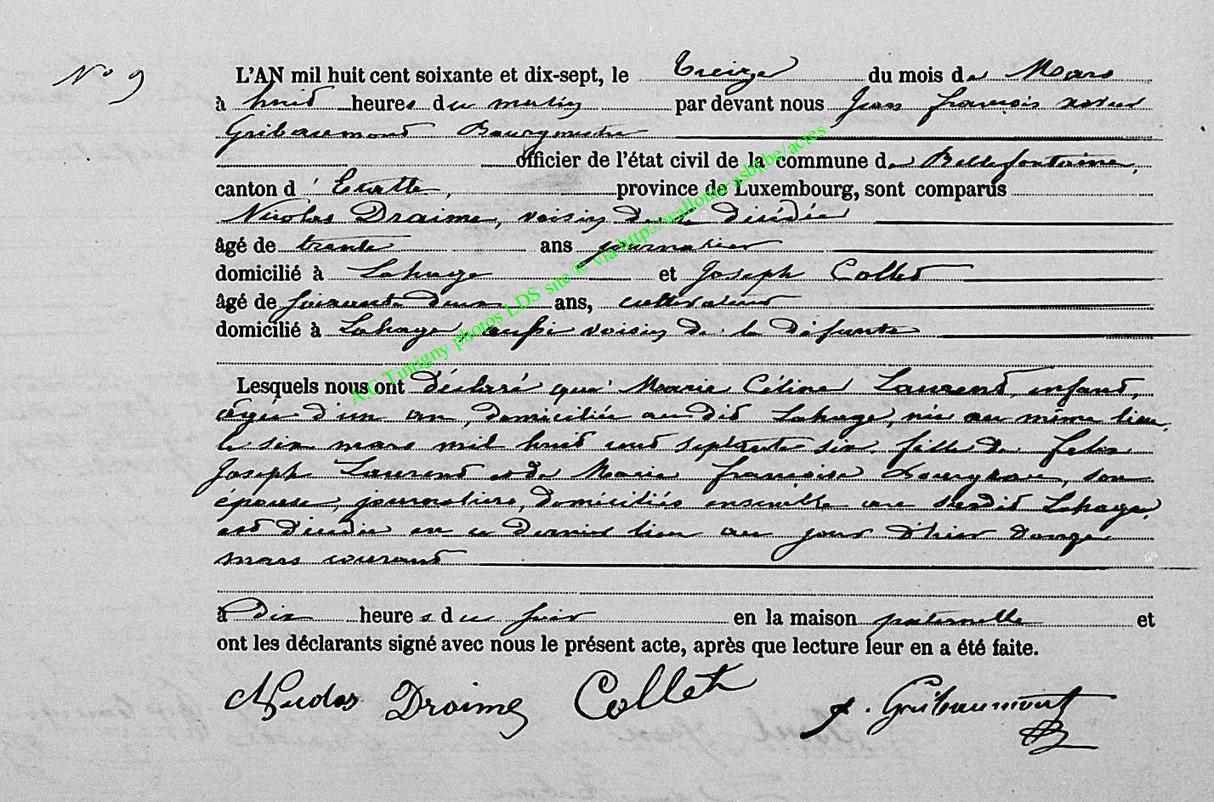 N° 9
L'AN mil huit cent soixante et dix-sept, le treize du mois de Mars
à huit heures du matin par devant nous Jean françois xavier
Gribaumont Bourgmestre
officier de l'état civil de la commune de Bellefontaine,
canton d'Etalle, province de Luxembourg, sont comparus
Nicolas Draime, voisin de la décédée
âgé de trente ans journalier
domicilié à Lahage et Joseph Collet
âgé de soixante deux ans, cultivateur
domicilié à Lahage, aussi voisin de la défunte
Lesquels nous ont déclaré que Marie Céline Laurent, enfant,
âgée d'un an, domiciliée au dit Lahage, née au même lieu,
le six mars mil huit cent septante six, fille de Felix
Joseph Laurent et de Marie françoise son
épouse, journaliers, domiciliés ensemble au susdit Lahage,
est décédée en ce dernier lieu au jour d'hier douze
mars courant
à dix heures du soir en la maison paternelle et
ont les déclarants signé avec nous le présent acte, après que lecture leur en a été faite.
Nicolas Draime Collet f. Gribaumont
A.G Timigny photos LDS site © via http://wallonia-asbl.be/actes